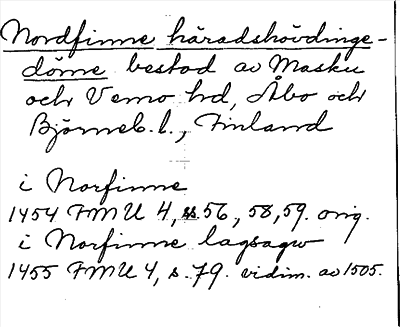 Nordfinne häradshövdinge-
döme bestod av Masku
och Vemo hd, Åbo och
Björneb. l., Finland
i Norfinne
1454 FMU 4, ss. 56, 58, 59. orig.
i Norfinne lagsagw
1455 FMU 4, s. 79. vidim. av 1505.